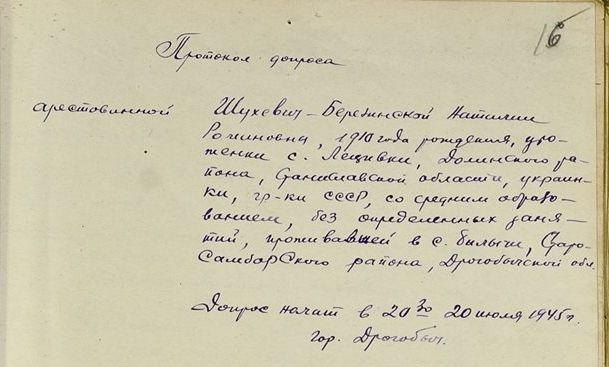 16
Протокол допроса
арестованной Шухевич-Березинской Наталии
Романовна, 1910 года рождения, уро-
женки с. Лецивки, Долинского ра-
йона, Станиславской области, украин-
ки, гр-ки СССР, со средним образо-
ванием, без определенных заня-
тий, проживавшей в с. Былычи, Старо-
Самборского района, Дрогобычской обл.
Допрос начат в 20 30 20 июля 1945 г.
гор. Дрогобыч.